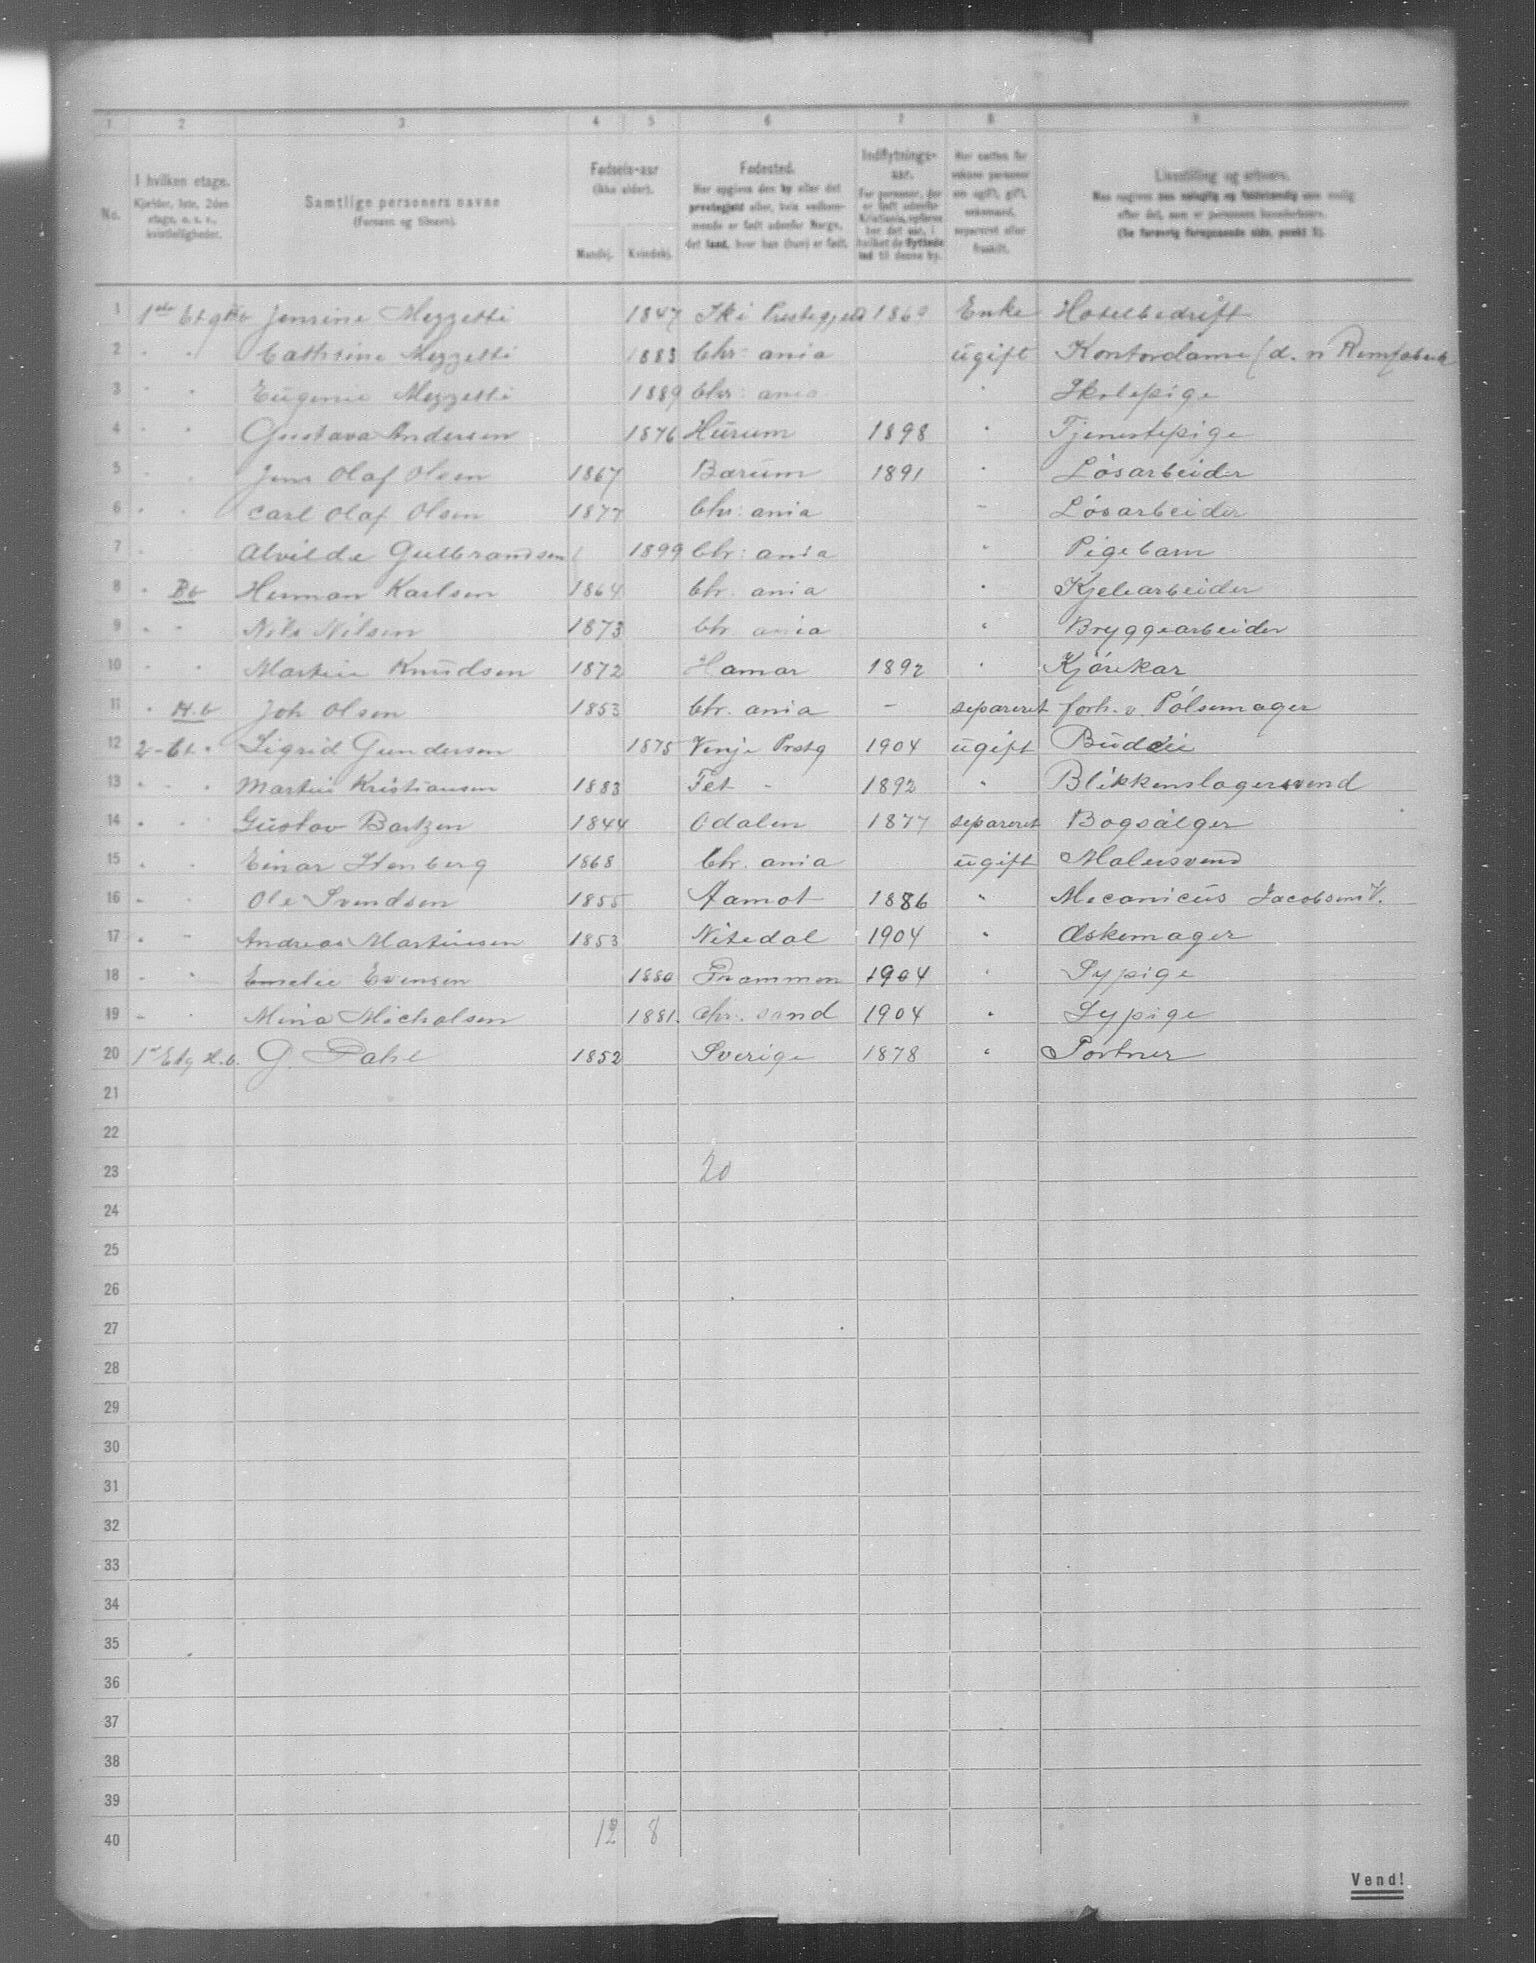 1 2 3 4 5 6 7 8 9
No. I hvilken etage. Kjelder, 1ste, 2den etage, o. s. v., kvistleiligheder. Samtlige personers navne (Fornavn og tilnavn). Fødsels-aar (ikke alder). Mandkj. Kvindekj. Fødested. Her opgives den by eller det prestegjeld eller, hvis vedkommende er født udenfor Norge, det land, hvor han (hun) er født. Indflytnings-aar. For personer, der er født udenfor Kristiania, opføres her det aar, i hvilket de flyttede ind til denne by. Her sættes for voksne personer om ugift, gift, enkemand, separeret eller fraskilt. Livsstilling og erhverv. Man opgives saa nøiagtig og fuldstændig som mulig efter det, som er personens hovederhverv. (Se forøvrig foregaaende side, punkt 5).
1 1ste Etg Jensine Mezzetti 1847 Ski Prestegjeld 1869 Enke Hotelbedrift
2 " " Cathrine Mezzetti 1883 Chr: ania ugift Kontordame
3 " " Eugenie Mezzetti 1889 Chr: ania " Skolepige
4 " " Gustava Andersen 1876 Hurum 1898 " Tjenestepige
5 " " Jens Olaf Olsen 1867 Bærum 1891 " Løsarbeider
6 " " Carl Olaf Olsen 1877 Chr: ania " Løsarbeider
7 " Alvilde Gulbrandsen 1899 Chr: ania " Pigebarn
8 " Bb Herman Karlsen 1864 Chr. ania " Kjelearbeider
9 " " Nils Nilsen 1873 Chr ania " Bryggearbeider
10 " " Martin Knudsen 1872 Hamar 1892 " Kjørekar
11 " H.b Joh Olsen 1853 Chr. ania – separeret forh. v. Pølsemager
12 2-Et. " Sigrid Gundersen 1875 Vinje Prstg 1904 ugift Budeie
13 " " " Martin Kristiansen 1883 Fet - 1892 " Blikkenslagersvend
14 " " " Gustav Bartzen 1844 Odalen 1877 separeret Bogsælger
15 " " Einar Stenberg 1868 Chr. ania ugift Malersvend
16 " " Ole Svendsen 1855 Aamot 1886 " Mecanicus Jacobsens V.
17 " " Andreas Martinsen 1853 Nitedal 1904 " Æskemager
18 " " Emelie Evensen 1880 Drammen 1904 " Sypige
19 " " Mina Micholsen 1881. Chr. sand 1904 " Sypige
20 1st Etg H.b. G. Dahl 1852 Sverige 1878 " Portner
21
22
23 20
24
25
26
27
28
29
30
31
32
33
34
35
36
37
38
39
40 12 8
Vend!